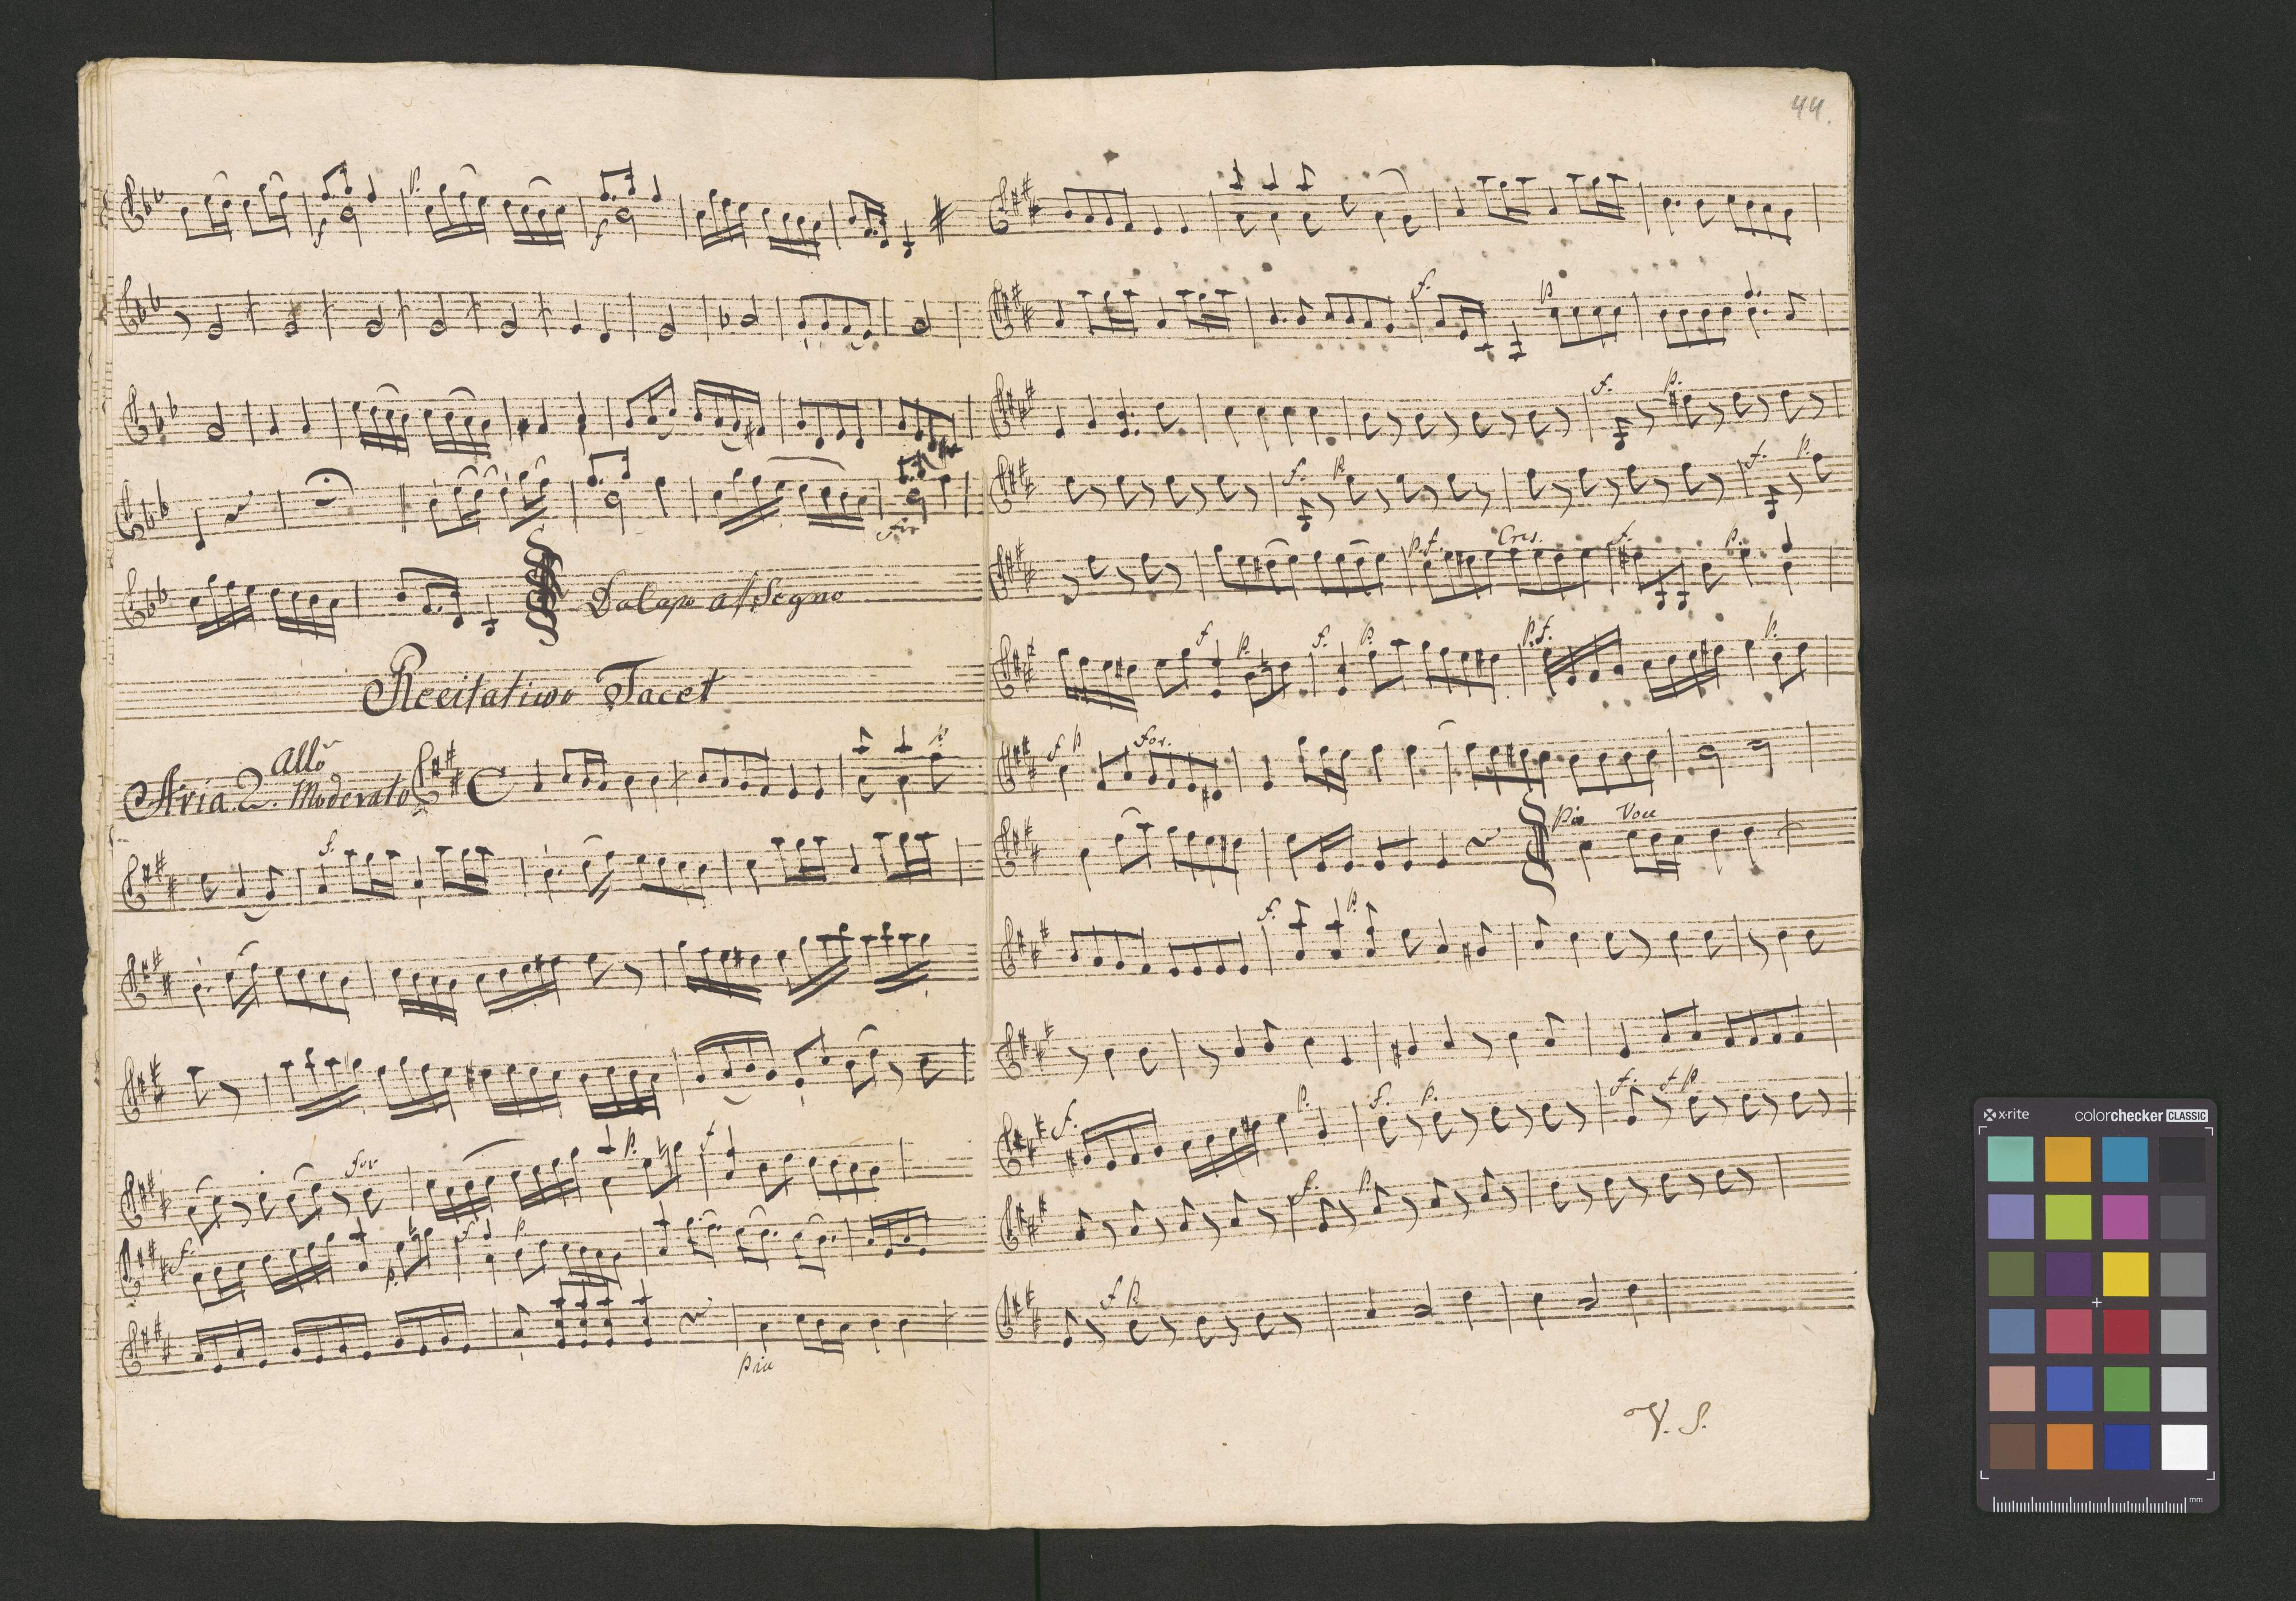 p.
f
f
for
DaCapo al Segno
Recitativo Tacet
Aria 2. Allo Moderato
p
f.
for
p.
f
f.
p.
f
p.
pia
44.
f.
p
f.
p.
f.
p.
f.
p.
p.f.
Cres.
f.
p.
f
p.
f.
p.
p.f.
p.
f p
for.
Pia
Voce
f.
p.
f.
p.
f.
p.
f.
f p
f.
p.
f p
V. S.
x-rite
colorchecker CLASSIC
mm